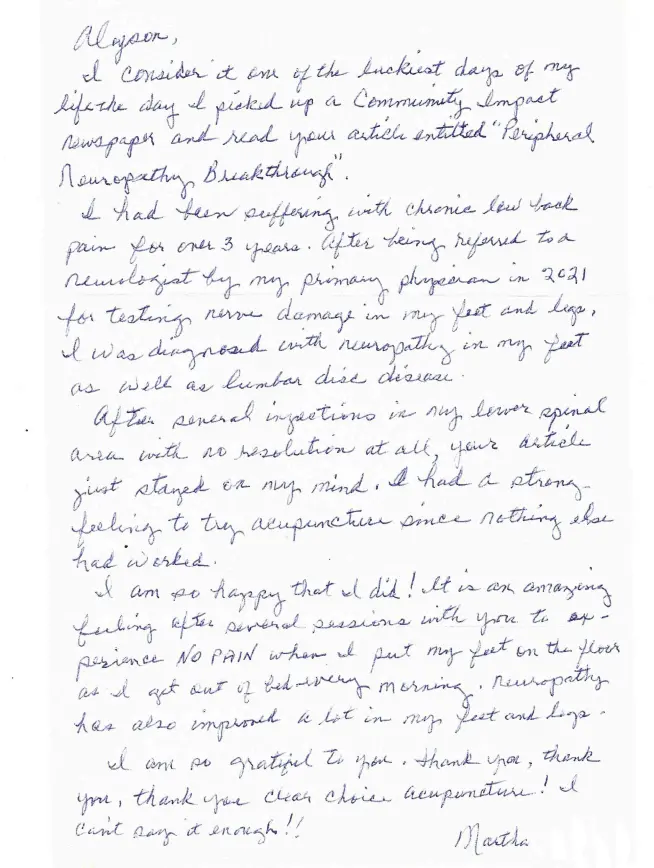 Alayson,
I consider it one of the luckiest days of my
life the day I picked up a Community Impact
newspaper and read your article entitled "Peripheral
Neuropathy Breakthrough".
I had been suffering with chronic low back
pain for over 3 years. After being referred to a
neurologist by my primary physician in 2021
for testing nerve damage in my feet and legs,
I was diagnosed with neuropathy in my feet
as well as lumbar disc disease.
After several injections in my lower spinal
area with no resolution at all, your article
just stayed on my mind. I had a strong
feeling to try acupuncture since nothing else
had worked.
I am so happy that I did! It is an amazing
feeling after several sessions with you to ex-
perience NO PAIN when I put my feet on the floor
as I get out of bed every morning. Neuropathy
has also improved a lot in my feet and legs.
I am so grateful to you. Thank you, thank
you, thank you Clear Choice Acupuncture! I
can't say it enough!!
Martha